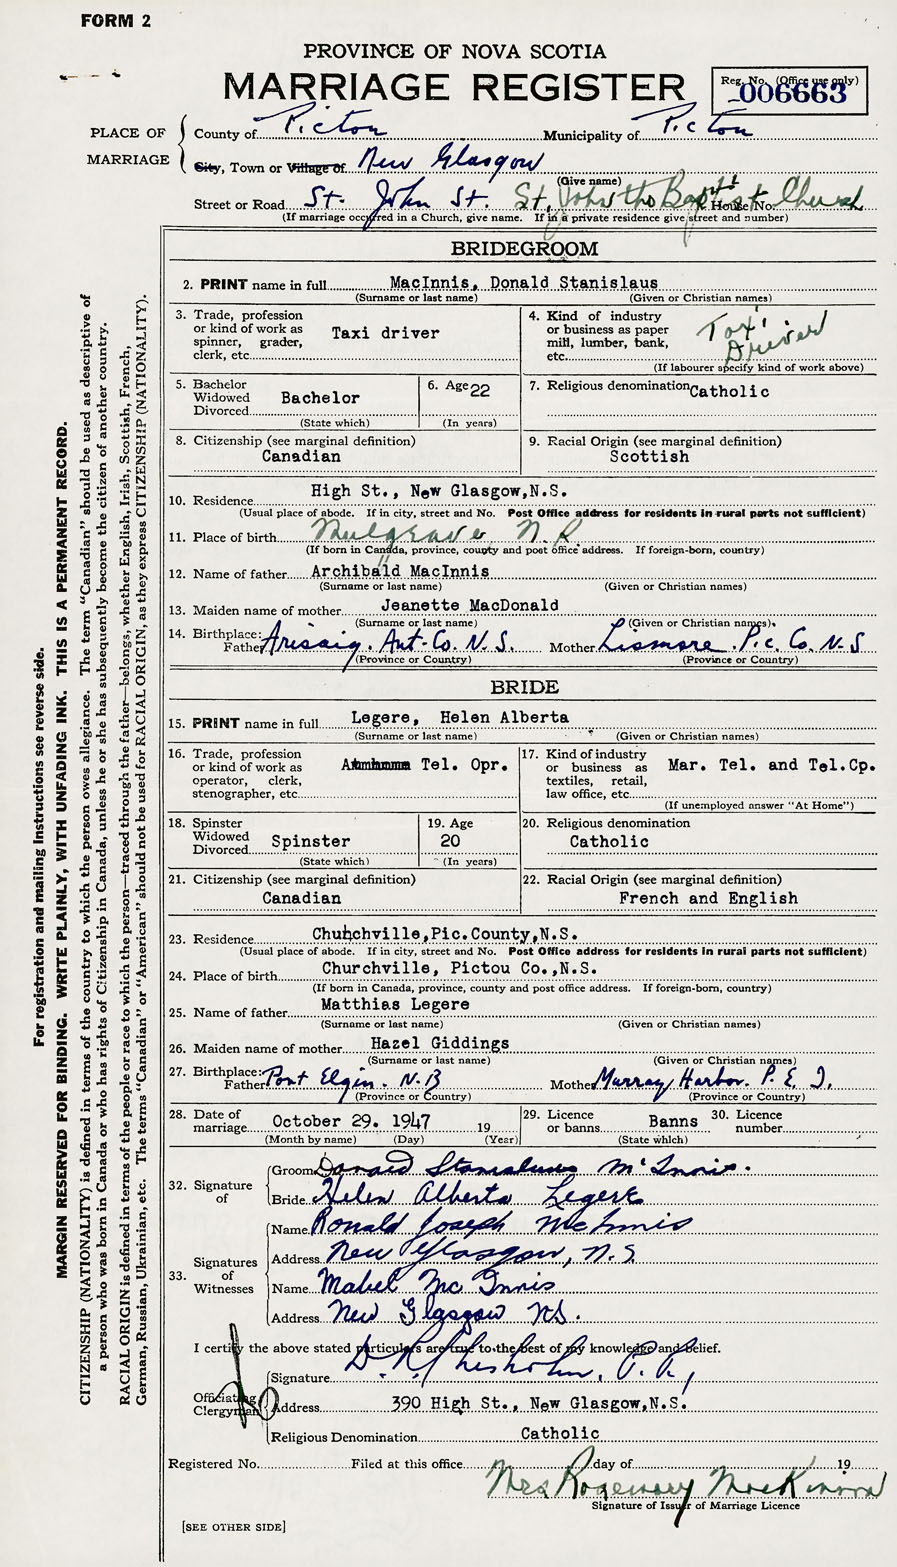 FORM 2
PROVINCE OF NOVA SCOTIA
MARRIAGE REGISTER
Reg. No. (Office use only)
006663
PLACE OF MARRIAGE
County of Picton Municipality of Picton
City, Town or Village of New Glasgow
(Give name)
Street or Road St. John St. St. John the Baptist Church House No.
(If marriage occurred in a Church, give name. If in a private residence give street and number)
BRIDEGROOM
2. PRINT name in full MacInnis, Donald Stanislaus
(Surname or last name) (Given or Christian names)
3. Trade, profession or kind of work as spinner, grader, clerk, etc. Taxi driver
4. Kind of industry or business as paper mill, lumber, bank, etc. Taxi Driver
(If labourer specify kind of work above)
5. Bachelor Widowed Divorced Bachelor
(State which)
6. Age 22
(In years)
7. Religious denomination Catholic
8. Citizenship (see marginal definition)
Canadian
9. Racial Origin (see marginal definition)
Scottish
10. Residence High St., New Glasgow, N.S.
(Usual place of abode. If in city, street and No. Post Office address for residents in rural parts not sufficient)
11. Place of birth Mulgrave N.S.
(If born in Canada, province, county and post office address. If foreign-born, country)
12. Name of father Archibald MacInnis
(Surname or last name) (Given or Christian names)
13. Maiden name of mother Jeanette MacDonald
(Surname or last name) (Given or Christian names).
14. Birthplace: Father Arisaig. Ant. Co. N.S. Mother Lismore. Pic. Co. N.S
(Province or Country) (Province or Country)
BRIDE
15. PRINT name in full Legere, Helen Alberta
(Surname or last name) (Given or Christian names)
16. Trade, profession or kind of work as operator, clerk, stenographer, etc. Tel. Opr.
17. Kind of industry or business as textiles, retail, law office, etc. Mar. Tel. and Tel.Cp.
(If unemployed answer "At Home")
18. Spinster Widowed Divorced Spinster
(State which)
19. Age 20
(In years)
20. Religious denomination
Catholic
21. Citizenship (see marginal definition)
Canadian
22. Racial Origin (see marginal definition)
French and English
23. Residence Chuhchville, Pic.County, N.S.
(Usual place of abode. If in city, street and No. Post Office address for residents in rural parts not sufficient)
24. Place of birth Churchville, Pictou Co., N.S.
(If born in Canada, province, county and post office address. If foreign-born, country)
25. Name of father Matthias Legere
(Surname or last name) (Given or Christian names)
26. Maiden name of mother Hazel Giddings
(Surname or last name) (Given or Christian names)
27. Birthplace: Father Port Elgin. N.B Mother Murray Harbor. P.E.I.
(Province or Country) (Province or Country)
28. Date of marriage October 29. 1947 19
(Month by name) (Day) (Year)
29. Licence or banns Banns
(State which)
30. Licence number
32. Signature of
Groom Donald Stanislaus McInnis.
Bride Helen Alberta Legere
33. Signatures of Witnesses
Name Ronald Joseph McInnis
Address New Glasgow, N.S
Name Mabel McInnis
Address New Glasgow N.S.
I certify the above stated particulars are true to the best of my knowledge and belief.
Officiating Clergyman
Signature D. R. Chisholm, P.P.,
Address 390 High St., New Glasgow, N.S.
Religious Denomination Catholic
Registered No. Filed at this office day of 19
Mrs Rosemary MacKinnon
Signature of Issuer of Marriage Licence
[SEE OTHER SIDE]
For registration and mailing instructions see reverse side.
MARGIN RESERVED FOR BINDING. WRITE PLAINLY, WITH UNFADING INK. THIS IS A PERMANENT RECORD.
CITIZENSHIP (NATIONALITY) is defined in terms of the country to which the person owes allegiance. The term "Canadian" should be used as descriptive of
a person who was born in Canada or who has rights of Citizenship in Canada, unless he or she has subsequently become the citizen of another country.
RACIAL ORIGIN is defined in terms of the people or race to which the person—traced through the father—belongs, whether English, Irish, Scottish, French,
German, Russian, Ukrainian, etc. The terms "Canadian" or "American" should not be used for RACIAL ORIGIN, as they express CITIZENSHIP (NATIONALITY).